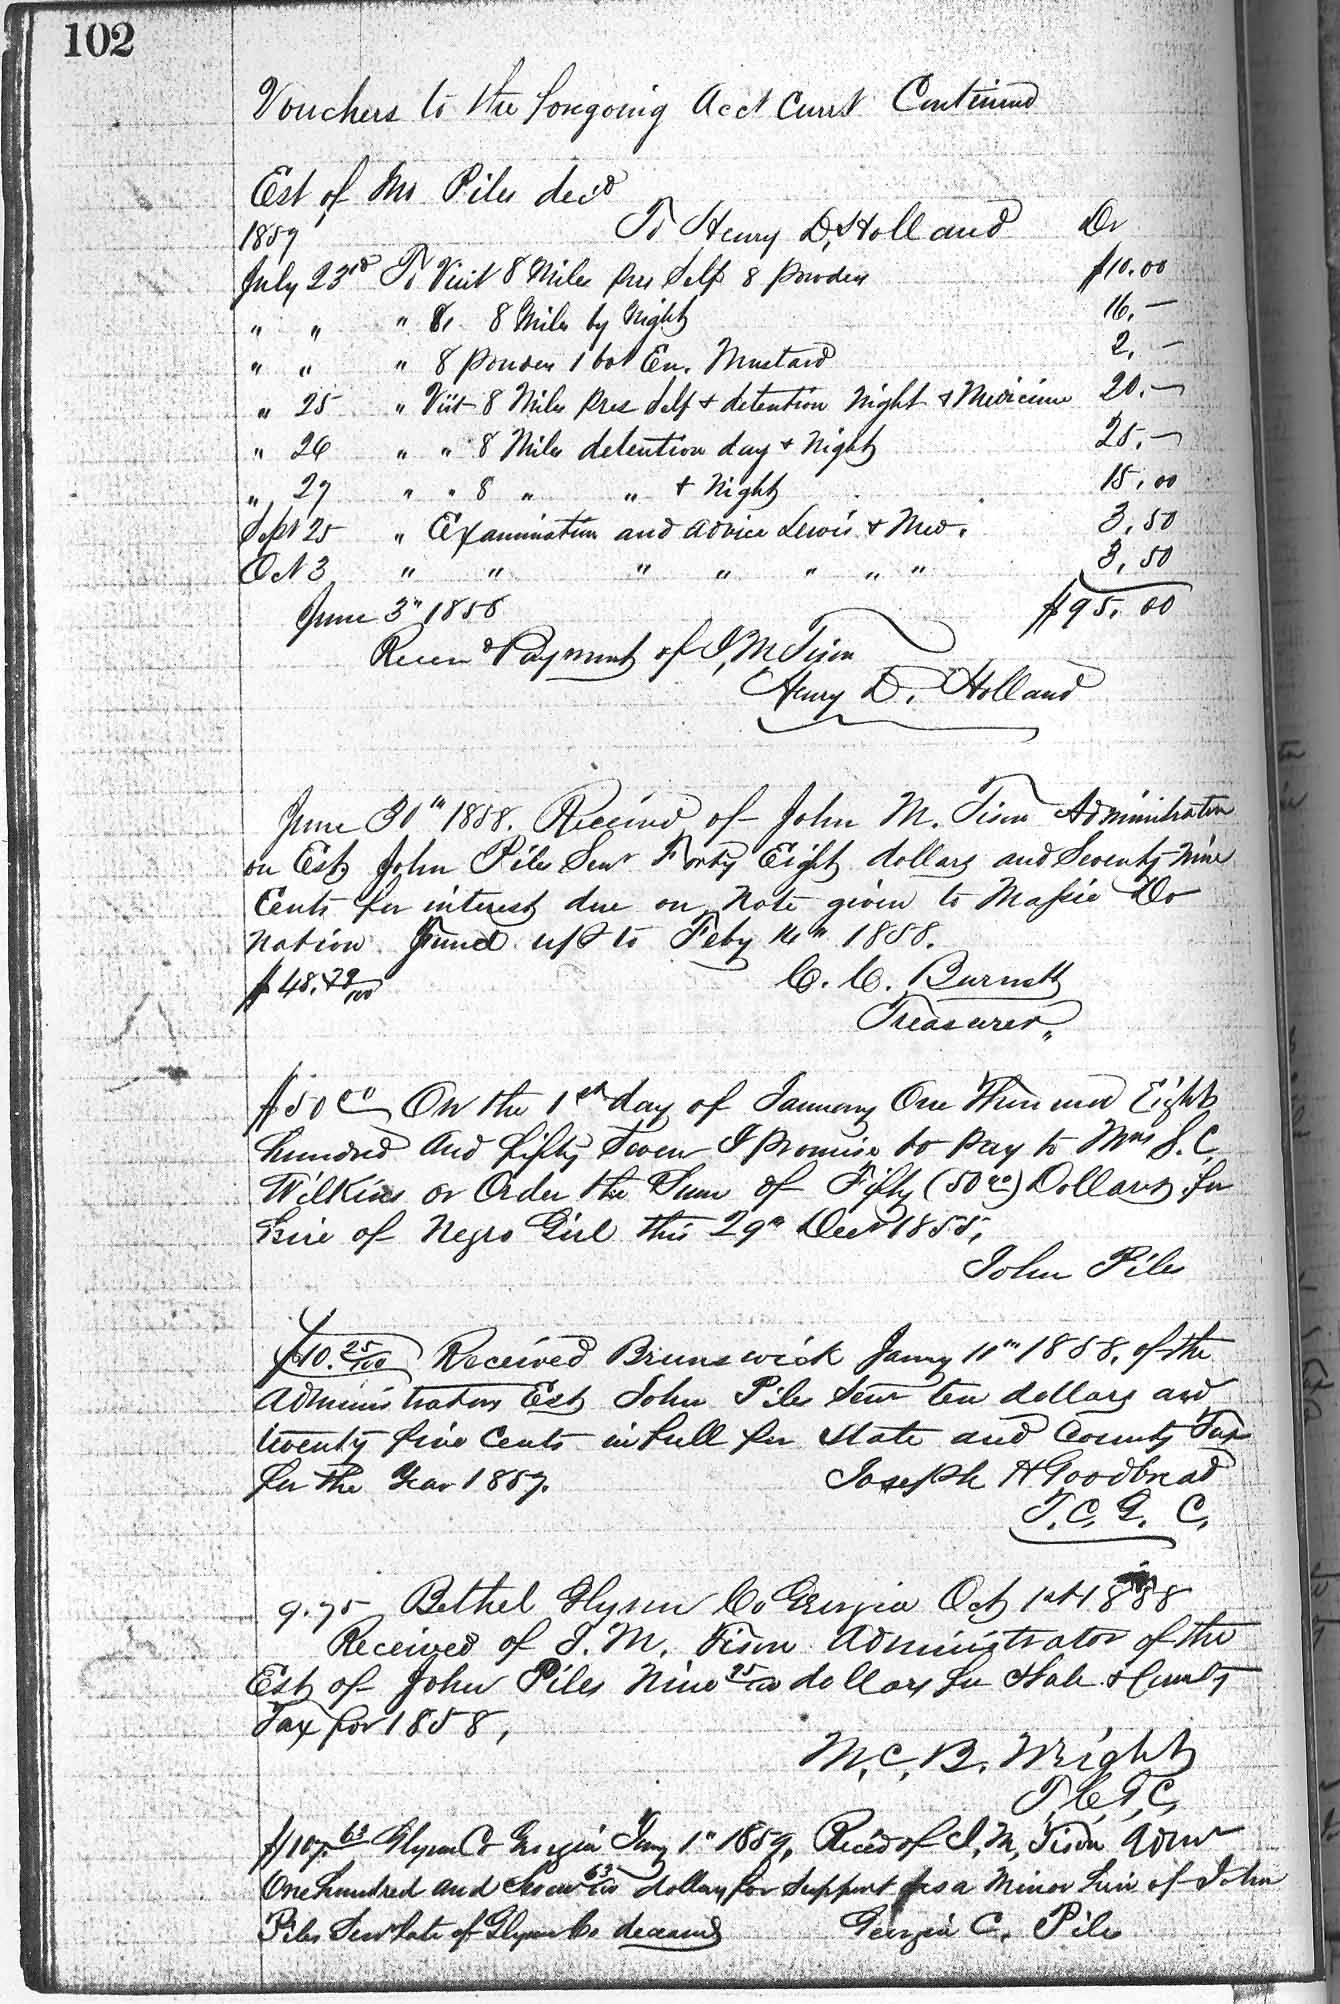 102
Vouchers to the foregoing Acct Currt Continued
Est of Jno Piles decd
1857 To Henry D. Holland Dr
July 23rd To Visit 8 Miles pres Self 8 powders $10.00
" " " & 8 Miles by Night 16.—
" " " 8 powders 1 bot En. Mustard 2.—
" 25 " Visit 8 Miles pres Self & detention Night & Medicine 20.—
" 26 " " 8 Miles detention day & Night 25.—
" 27 " " 8 " " & Night 15.00
Sept 25 " Examination and advice Lewis & Med. 3.50
Oct 3 " " " " " " " 3.50
June 3" 1858 $95.00
Receivd Payment of J. M. Tison
Henry D. Holland
June 30th 1858. Received of John M. Tison Administrator
on Est. John Piles Senr Forty Eight dollars and Seventy Nine
Cents for interest due on Note given to Massie Do
nation Fund up to Feby 14th 1858.
$48.79/100 C. C. Burnett
Treasurer,,
$50 00 On the 1st day of January One Thousand Eight
hundred and fifty Seven I promise to pay to Mrs S. C.
Wilkins or Order the Sum of Fifty (50 00) Dollars for
hire of Negro Girl this 29th Decr 1855,
John Piles
$10.25/100 Received Brunswick Janry 11th 1858. of the
Administrators Est John Piles Senr ten dollars and
twenty five Cents in full for State and County Tax
for the Year 1857. Joseph H Goodbread
T. C. G. C.
9.75 Bethel Glynn Co Georgia Oct 1st 1858
Received of J. M. Tison Administrator of the
Est of John Piles Nine 75/100 dollars for State & County
Tax for 1858,
M. C. B. Wright
T. C. G. C,
$107.63 Glynn Co Georgia Jany 1" 1859, Recied of J. M. Tison Admr
One hundred and Seven 63/100 dollars for Support as a Minor heir of John
Piles Senr late of Glynn Co deceased Georgia C. Piles